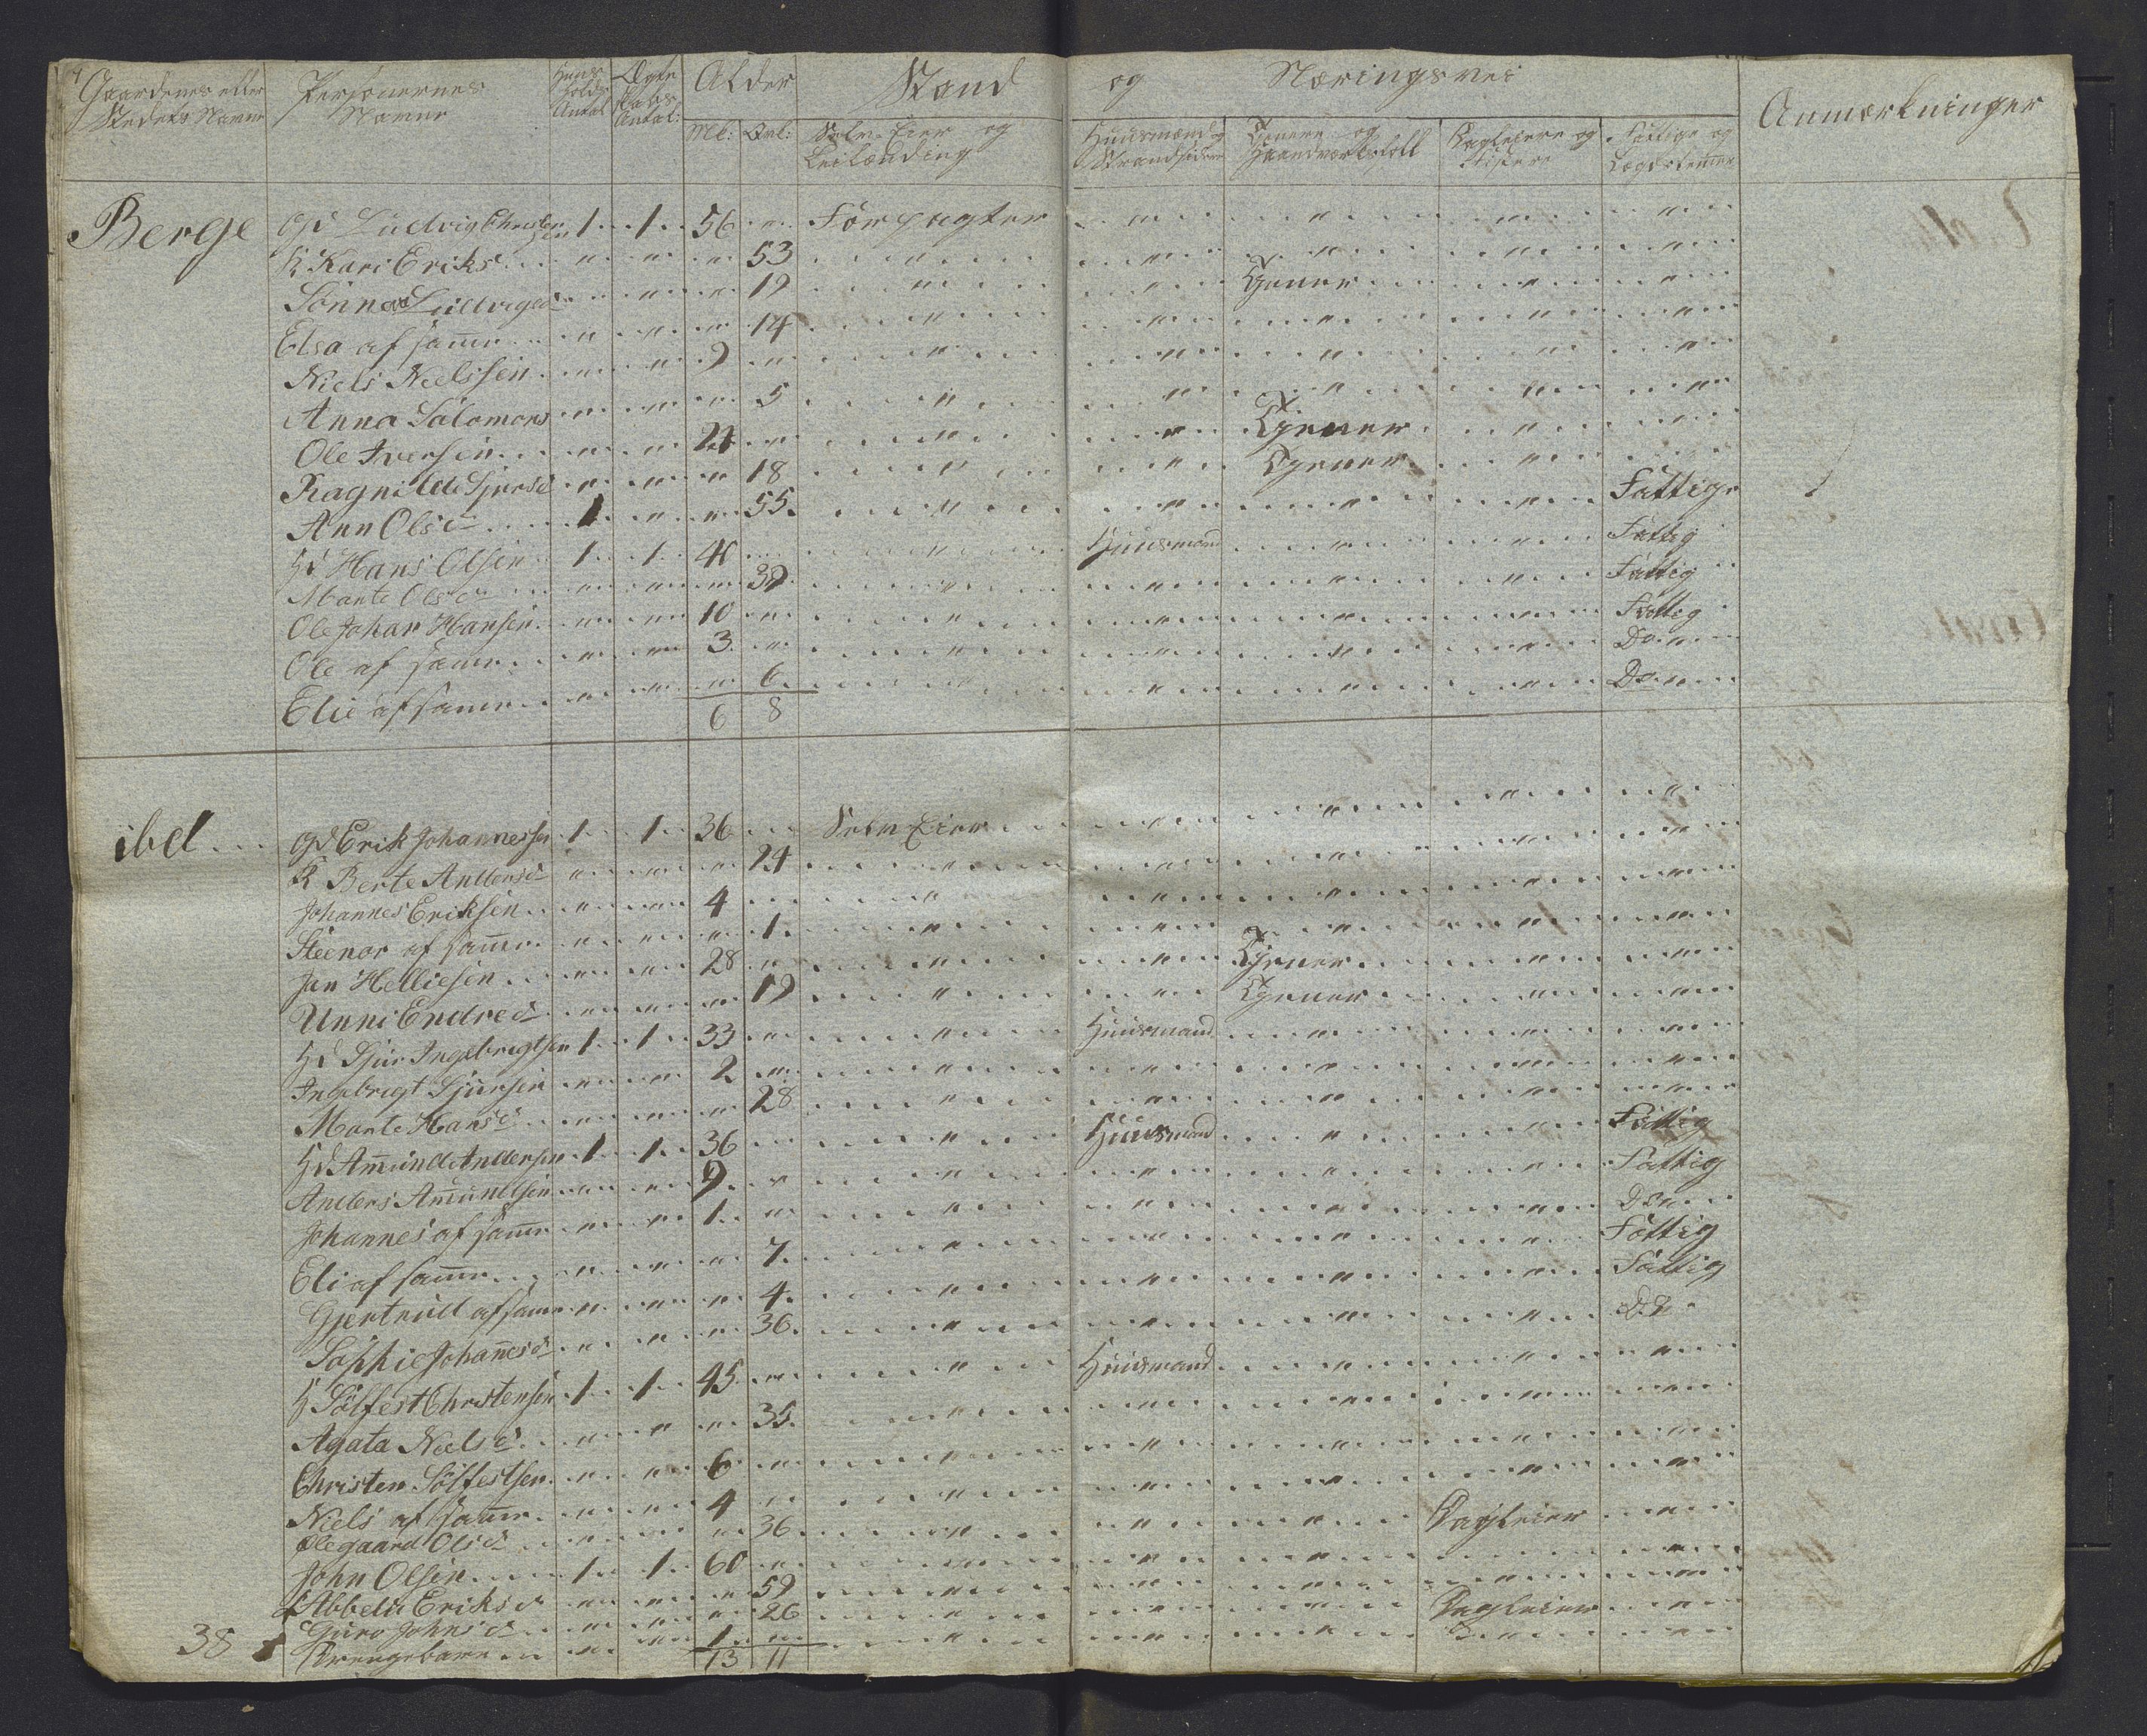 Gaardenes eller Stædets Navne | Personernes Navne | Huus holds Antal | Ægte skabs Antal: | Alder | Stand og Næringsvei | Anmærkninger
Mk: | Qvl: | Selv-Eier og Leilænding | Huusmænd og Strandsidere | Tjenere og Haandverksfolk | Dagleiere og | Fattige og Lægdslemmer
Berge Gd Ludvig Christensen 1 1 56 Forpagter
K Kari Eriksd 53
Sønneva Ludvigsd 19 Tjener
Elsa af samme 14
Niels Nielssen 9
Anna Salomons 5
Ole Iversen 21 Tjener
Ragnilde Sjursd 18 Tjener
Ann Olsd 1 55 Fattige
Hd Hans Olsen 1 1 41 Huusmand Fattig
Marite Olsd 39 Fattig
Ole Johan Hansen 10 Fattig
Ole af samme 3 Do
Elie af samme 6 Do
6 8
ibd Gd Erik Johannessen 1 1 36 Selv Eier
K Berte Andersd 24
Johannes Eriksen 4
Steenor af samme 1
Jan Helliesen 28 Tjener
Unni Endred 19 Tjener
Hd Sjur Ingebrigtsen 1 1 33 Huusmand
Ingebrigt Sjursen 2
Marite Hansd 28
Hd Amund Andersen 1 1 36 Huusmand Fattig
Anders Amundsen 9 Fattig
Johannes af samme 1 Do
Eli af samme 7 Fattig
Gjertrud af samme 4 Fattig
Sophie Johanesd 36 Do
H Sølfest Christensen 1 1 45 Huusmand
Agata Nielsd 35
Christen Sølfestsen 6
Niels af samme 4
Olegaard Olsd 36 Dagleier
John Olsen 1 1 60
Abbelu Eriksd 59
Guro Johnsd 26 Dagleier
38 Drengebarn 1
13 11